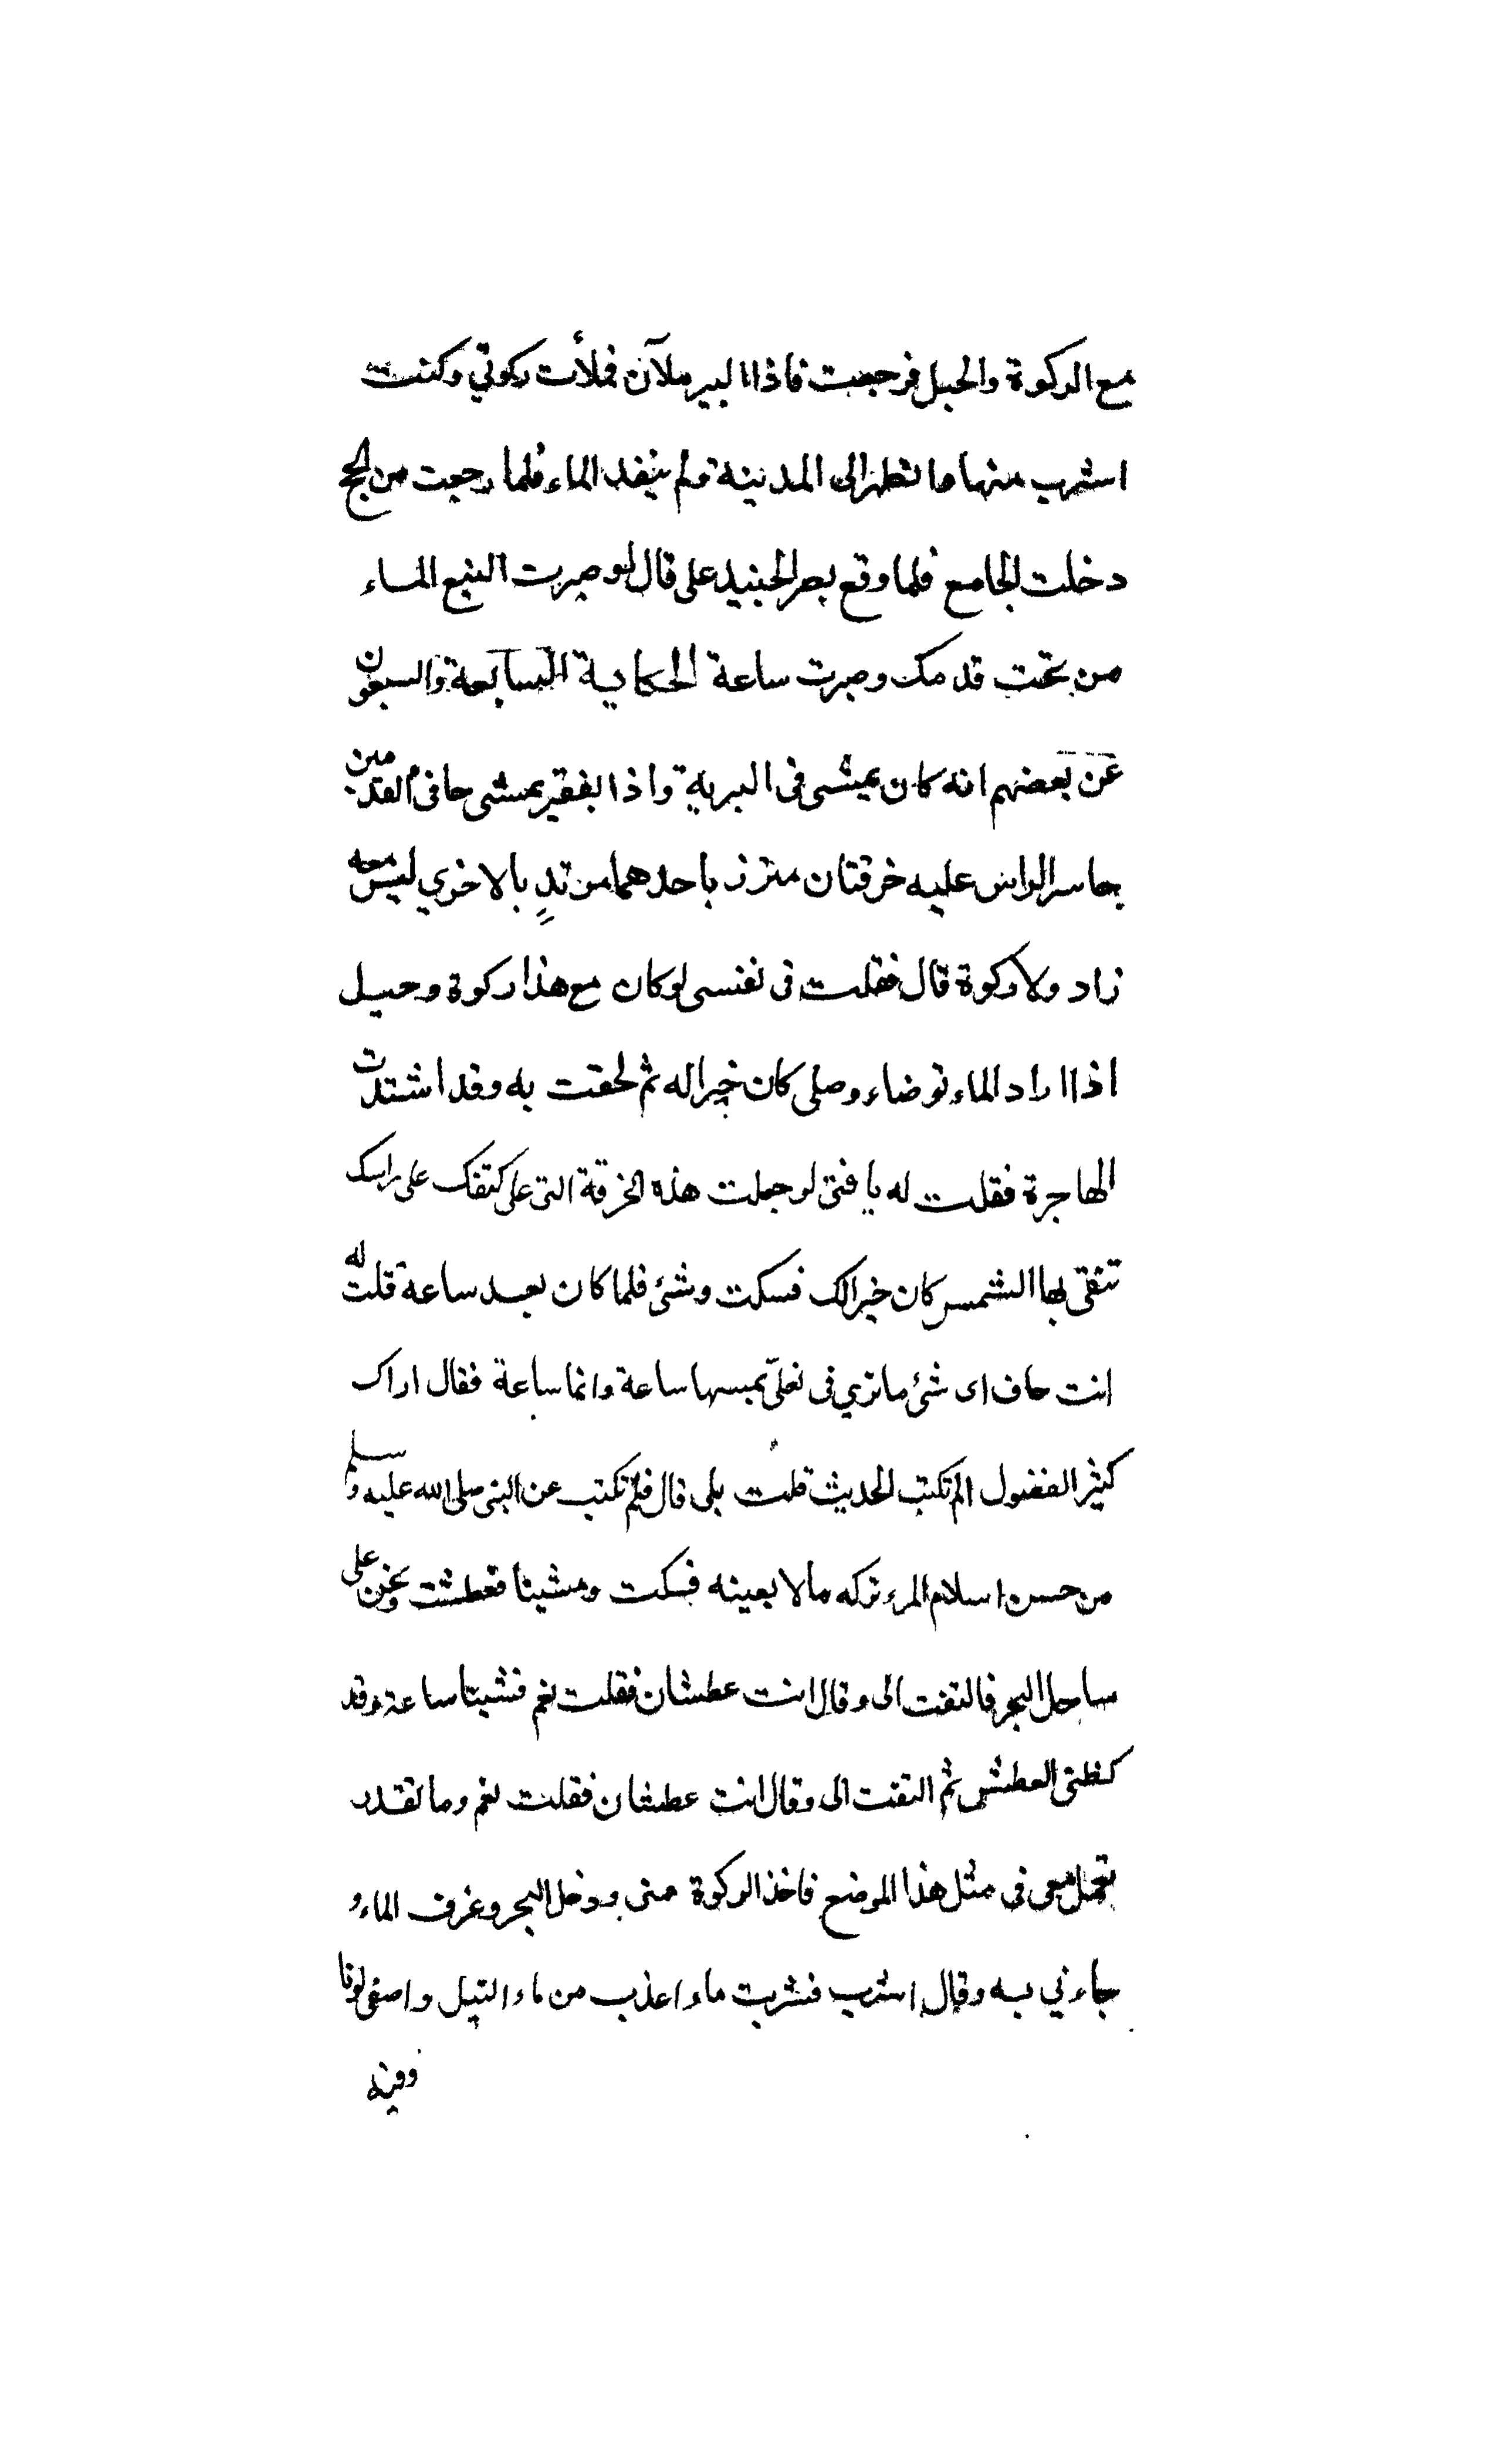 مع الركوة والحبل فرجعت فاذا البير ملآن فملأت ركوتي وكنت
اشرب منها واتطهر الى المدينة ولم ينفد الماء فلما رجعت من الحج
دخلت الجامع فلما وقع بصر الجنيد على قال لو صبرت لنبع الماء
من تحت قدمك وصبرت ساعة الحكاية السابعة والسبعون
عن بعضهم انه كان يمشى فى البرية واذا بفقير يمشى حافى القدمين
حاسر الراس عليه خرقتان متزر باحدهما مرتدٍ بالاخري ليس معه
زاد ولا ركوة قال فقلت فى نفسى لو كان مع هذا ركوة وحبل
اذا اراد الماء توضاء وصلى كان خيرا له ثم لحقت به وقد اشتدت
الهاجرة فقلت له يا فتى لو جعلت هذه الخرقة التى على كتفك على راسك
تتقى بها الشمس كان خيرا لك فسكت ومشى فلما كان بعد ساعة قلت له
انت حاف اى شئ ما ترى فى نعلى تلبسها ساعة وانا ساعة فقال اراك
كثير الفضول الم تكتب الحديث قلت بلى قال فلم تكتب عن النبى صلى الله عليه وسلم
من حسن اسلام المرء تركه مالا يعينه فسكت ومشينا فعطشت ونحن على
ساحل البحر فالتفت الى وقال انت عطشان فقلت نعم فمشينا ساعة وقد
كظنى العطش ثم التفت الى وقال انت عطشان فقلت نعم وما تقدر
تعمل معى فى مثل هذا الموضع فاخذ الركوة منى ودخل البحر وغرف الماء و
جاءني به وقال اشرب فشربت ماء اعذب من ماء النيل واصفى لونا
وفيه